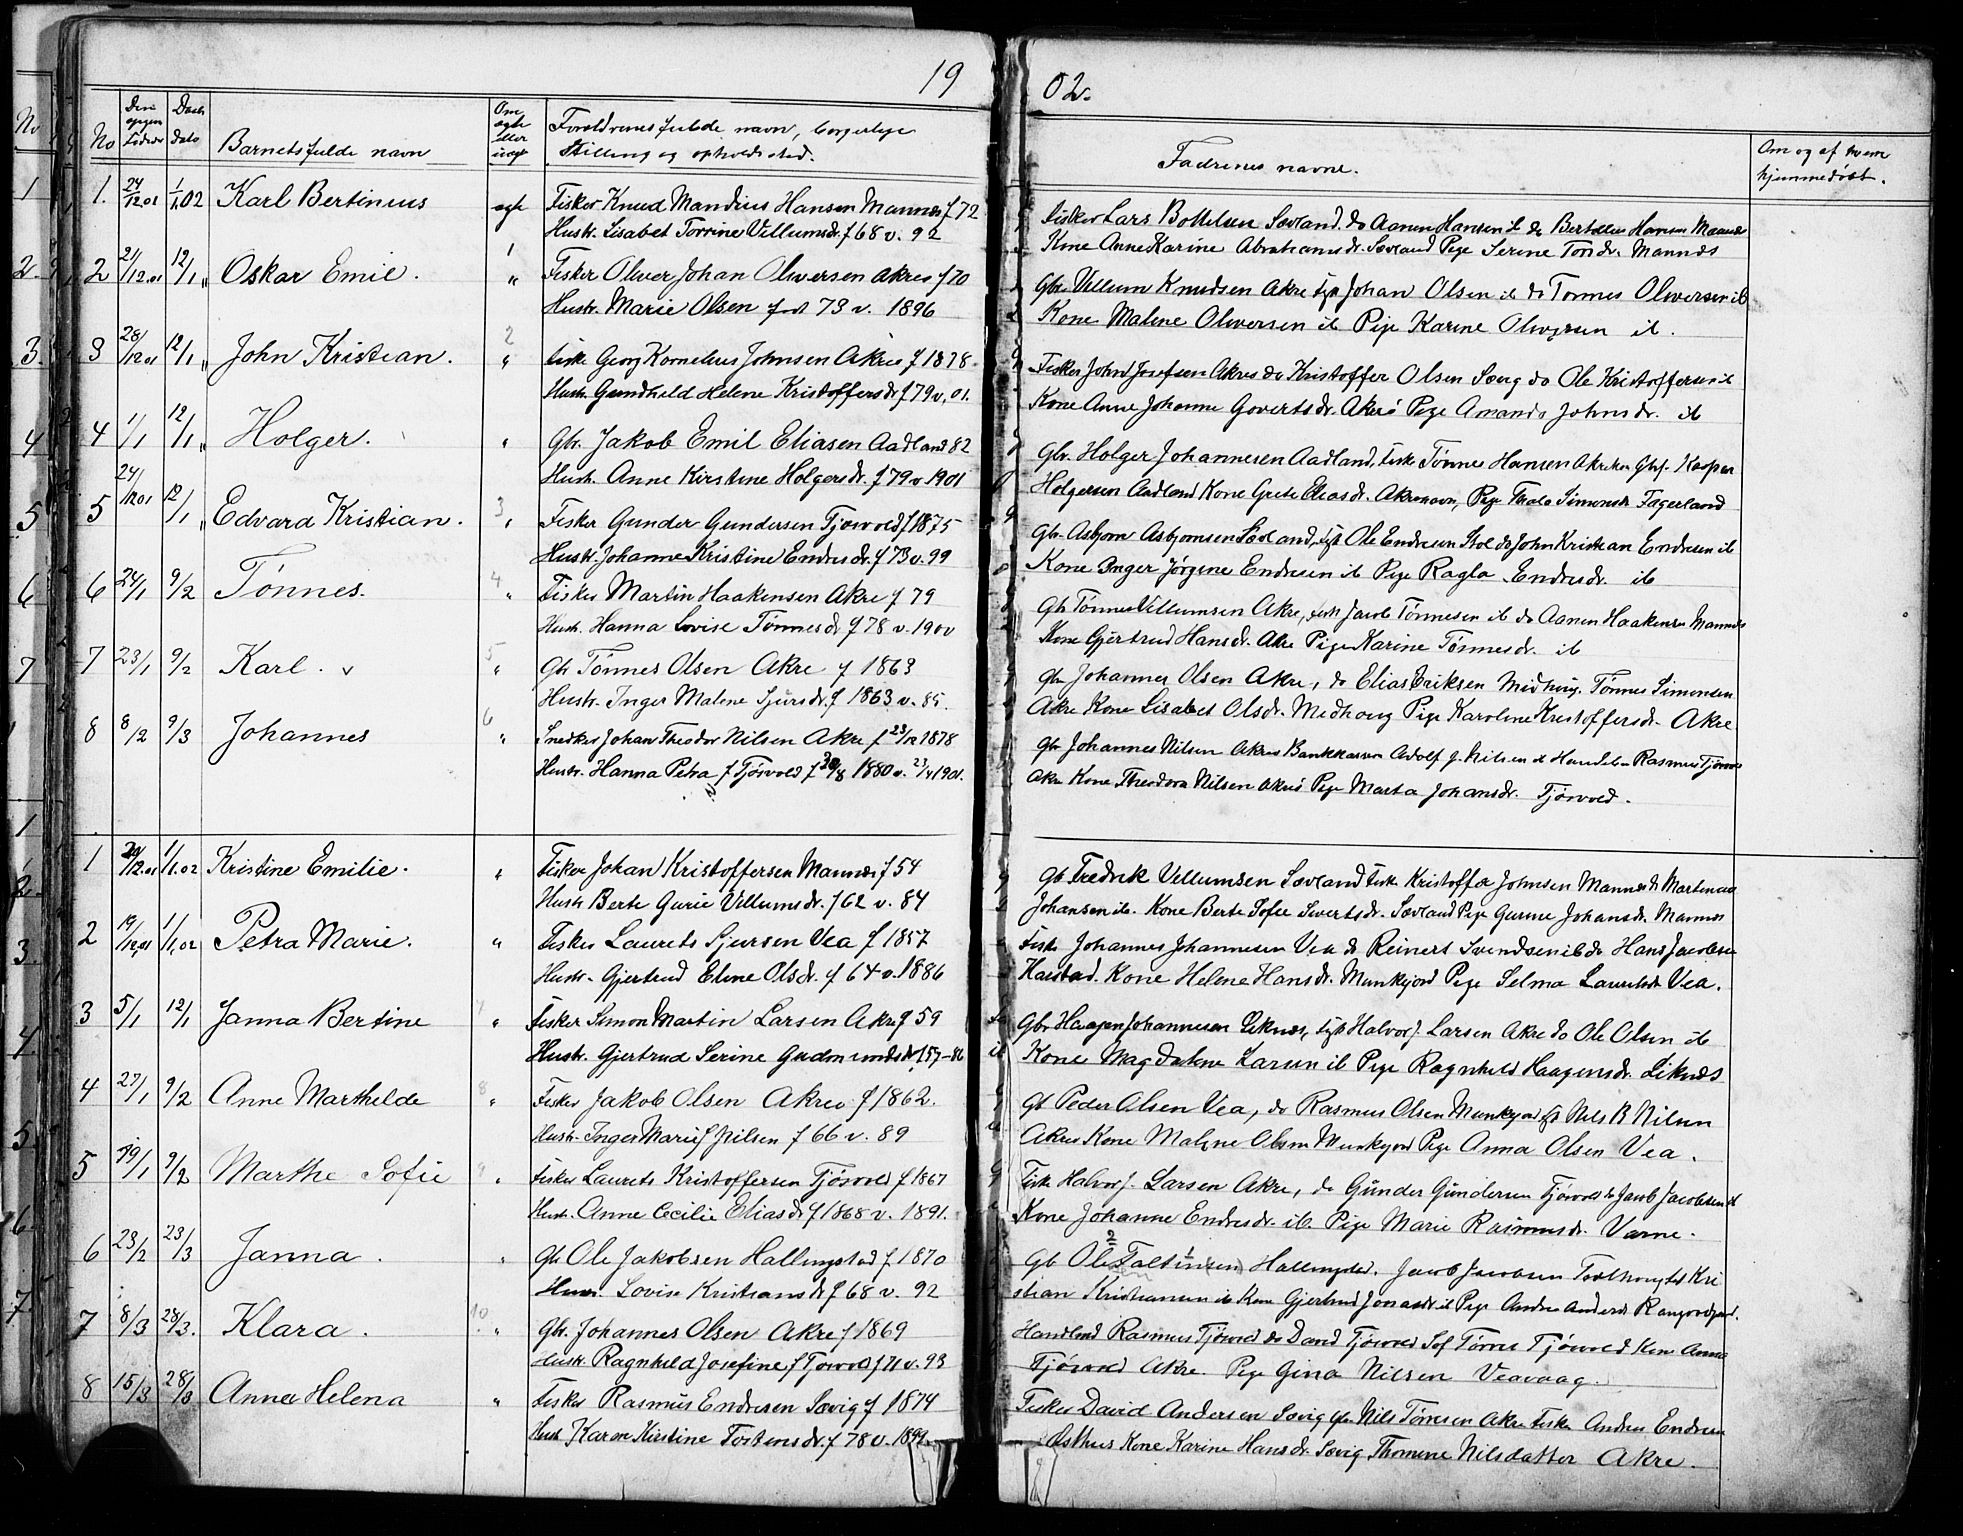 19 02.
No Barnets fulde navn Forældrenes fulde navn, borgerlige
Stilling og opholdssted. Fadrenes navne. Om og af hvem
hjemmedøbt.
1. 24/12 01 1/1 02 Karl Bertinius egte Fisker Knud Mandius Hansen Mannes f 72
Hustr. Lisabet Torrine Villumsdr. f 68 v. 92
Fisker Lars Bottelsen Sævland. do Aanen Hansen ib do Bertelius Hansen Mannes
Kone Anne Karine Abrahamsdr. Sævland Pige Serine Tondr. Mannes
2 21/12.01 12/1 " Oskar Emil. " Fisker Oliver Johan Oliversen Akre f 70
Hustr. Marie Olsen født 73 v. 1896
Gbr Villum Knudsen Akre Johan Olsen ib do Tønnes Oliversen ib
Kone Malene Oliversen ib Pige Karine Oliversen ib.
3 28/12 01 12/1 " John Kristian. " Fisk Georg Kornelius Johnsen Akre f 1878
Hustr. Gundhild Helene Kristoffersdr f 79 v. 01.
Fisker John Josefsen Akre do Kristoffer Olsen Sævig do Ole Kristoffersen ib
Kone Anne Johanne Govertsdr. Akre Pige Amanda Johnsdr. ib
4 1/1 12/1 " Holger. " Gbr. Jakob Emil Eliasen Aadland 82
Hustr. Anne Kirstine Holgersdr. f 79 v 1901
Gbr. Holger Johannesen Aadland, Fisk Tønnes Hansen Kasper
Holgersen Aadland Kone Grete Eliasdr. Akrehavn, Pige Thala Simonsdr Fagerland
5 24/12 01 12/1 " Edvard Kristian. " Fisker Gunder Gundersen Tjøsvold f 1875
Hustr. Johanne Kristine Endresdr. f 73 v. 99
Gbr. Asbjørn Asbjørnsen Sævland, Ole Endresen Stol do John Kristian Endresen ib
Kone Inger Jørgine Endresen ib Pige Ragla Endresdr. ib
6 24/1 9/2 Tønnes. " Fisker Martin Haakensen Akre f 79
Hustr. Hanna Lovise Tønnesdr f 78 v. 1900
Gbr Tønnes Villumsen Akre, Jacob Tønnesen ib do Aanen Haakensen Mannes
Kone Gjertrud Hansdr. Akre Pige Karine Tønnesdr. ib
7 23/1 9/2 Karl. " Gbr Tønnes Olsen Akre f 1863
Hustr. Inger Malene Sjursdr. f 1863 v. 85.
Gbr Johannes Olsen Akre, do Elias Eriksen Midhoug. Tønnes Simonsen
Akre Kone Lisabet Olsdr. Medhoug Pige Karoline Kristoffersdr. Akre
8 8/2 9/3 Johannes " Snedker Johan Theodor Nilsen Akre f 23/12 1878
Hustr. Hanna Petra f Tjøsvold f 30/8 1880 v. 21/4 1901.
Gbr Johannes Nilsen Akre Bankkasserer Adolf J. Nilsen ib Handelsm Rasmus Tjøsvold
Akre Kone Theodora Nilsen Akre Pige Marta Johansdr. Tjøsvold.
1 24/12.01 1/1.02 Kristine Emilie. " Fisker Johan Kristoffersen Mannes f 54
Hustr Berte Gurie Villumsdr. f 62 v. 84
Gb Fredrik Villumsen Sævland Fisk Kristoffer Johnsen Mannes do Martinius
Johansen ib. Kone Berte Sofie Sivertsdr. Sævland Pige Gurine Johansdr. Mannes
2 19/12.01 1/1.02 Petra Marie. " Fisker Laurets Sjursen Vea f 1857
Hustr. Gjertrud Eline Olsdr. f 64 v. 1886
Fisk Johannes Johannesen Vea do Reinert Svendsen ib do Hans Jacobsen
Harstad. Kone Helene Hansdr. Munkejord Pige Selma Lauritsdr Vea.
3 5/1 12/1 Janna Bertine " Fisker Simon Martin Larsen Akre f 59
Hustr. Gjertrud Serine Gudmundsdr. f 57-86
Gbr Haagen Johannesen Liknes, Halvor J. Larsen Akre do Ole Olsen ib
Kone Magdalene Larsen ib Pige Ragnhild Haagensdr. Liknes
4 27/1 9/2 Anne Marthilde " Fisker Jakob Olsen Akre f 1862.
Hustr. Inger Marie f Nilsen f 66 v. 89
Gb Peder Olsen Vea, do Rasmus Olsen Munkejord Nils B Nilsen
Akre Kone Malene Olsen Munkejord Pige Anna Olsen Vea.
5 19/1 9/2 Marthe Sofie " Fisker Laurets Kristoffersen Tjøsvold f 1867
Hust. Anne Cecilie Eliasdr f 1868 v. 1891.
Fisk Halvor J. Larsen Akre, do Gunder Gundersen Tjøsvold do Jacob Jacobsen ib
Kone Johanne Endresdr. ib. Pige Marie Rasmusdr. Varne.
6 23/2 23/3 Janna. " Gbr Ole Jakobsen Hallingstad f. 1870
Hustr. Lovise Kristiansdr f 68 v. 92
Gb Ole Faltinsen Hallingstad. Jacob Jacobsen Kri
stian Kristiansen ib Kone Gjertrud Jonasdr. ib Pige Andrea Andersdr
7 8/3 28/3. Klara. " Gbr. Johannes Olsen Akre f 1869
Hustr. Ragnhild Josefine f Tjøsvold f 71 v. 93
Handlsmd Rasmus Tjøsvold do David Tjøsvold Tjøsvold Kone Anna
Tjøsvold Akre. Pige Gina Nilsen Veavaag.
8 15/3 28/3 Anna Helena " Fisker Rasmus Endresen Sævig f 1874
Hust Karen Kirstine Tostensdr. f 78 v. 1899.
Fisker David Andersen Sævig Nils Tønnesen Akre Fisk Andreas Endresen
Østhus Kone Karine Hansdr. Sævig Thomine Nilsdatter Akre.